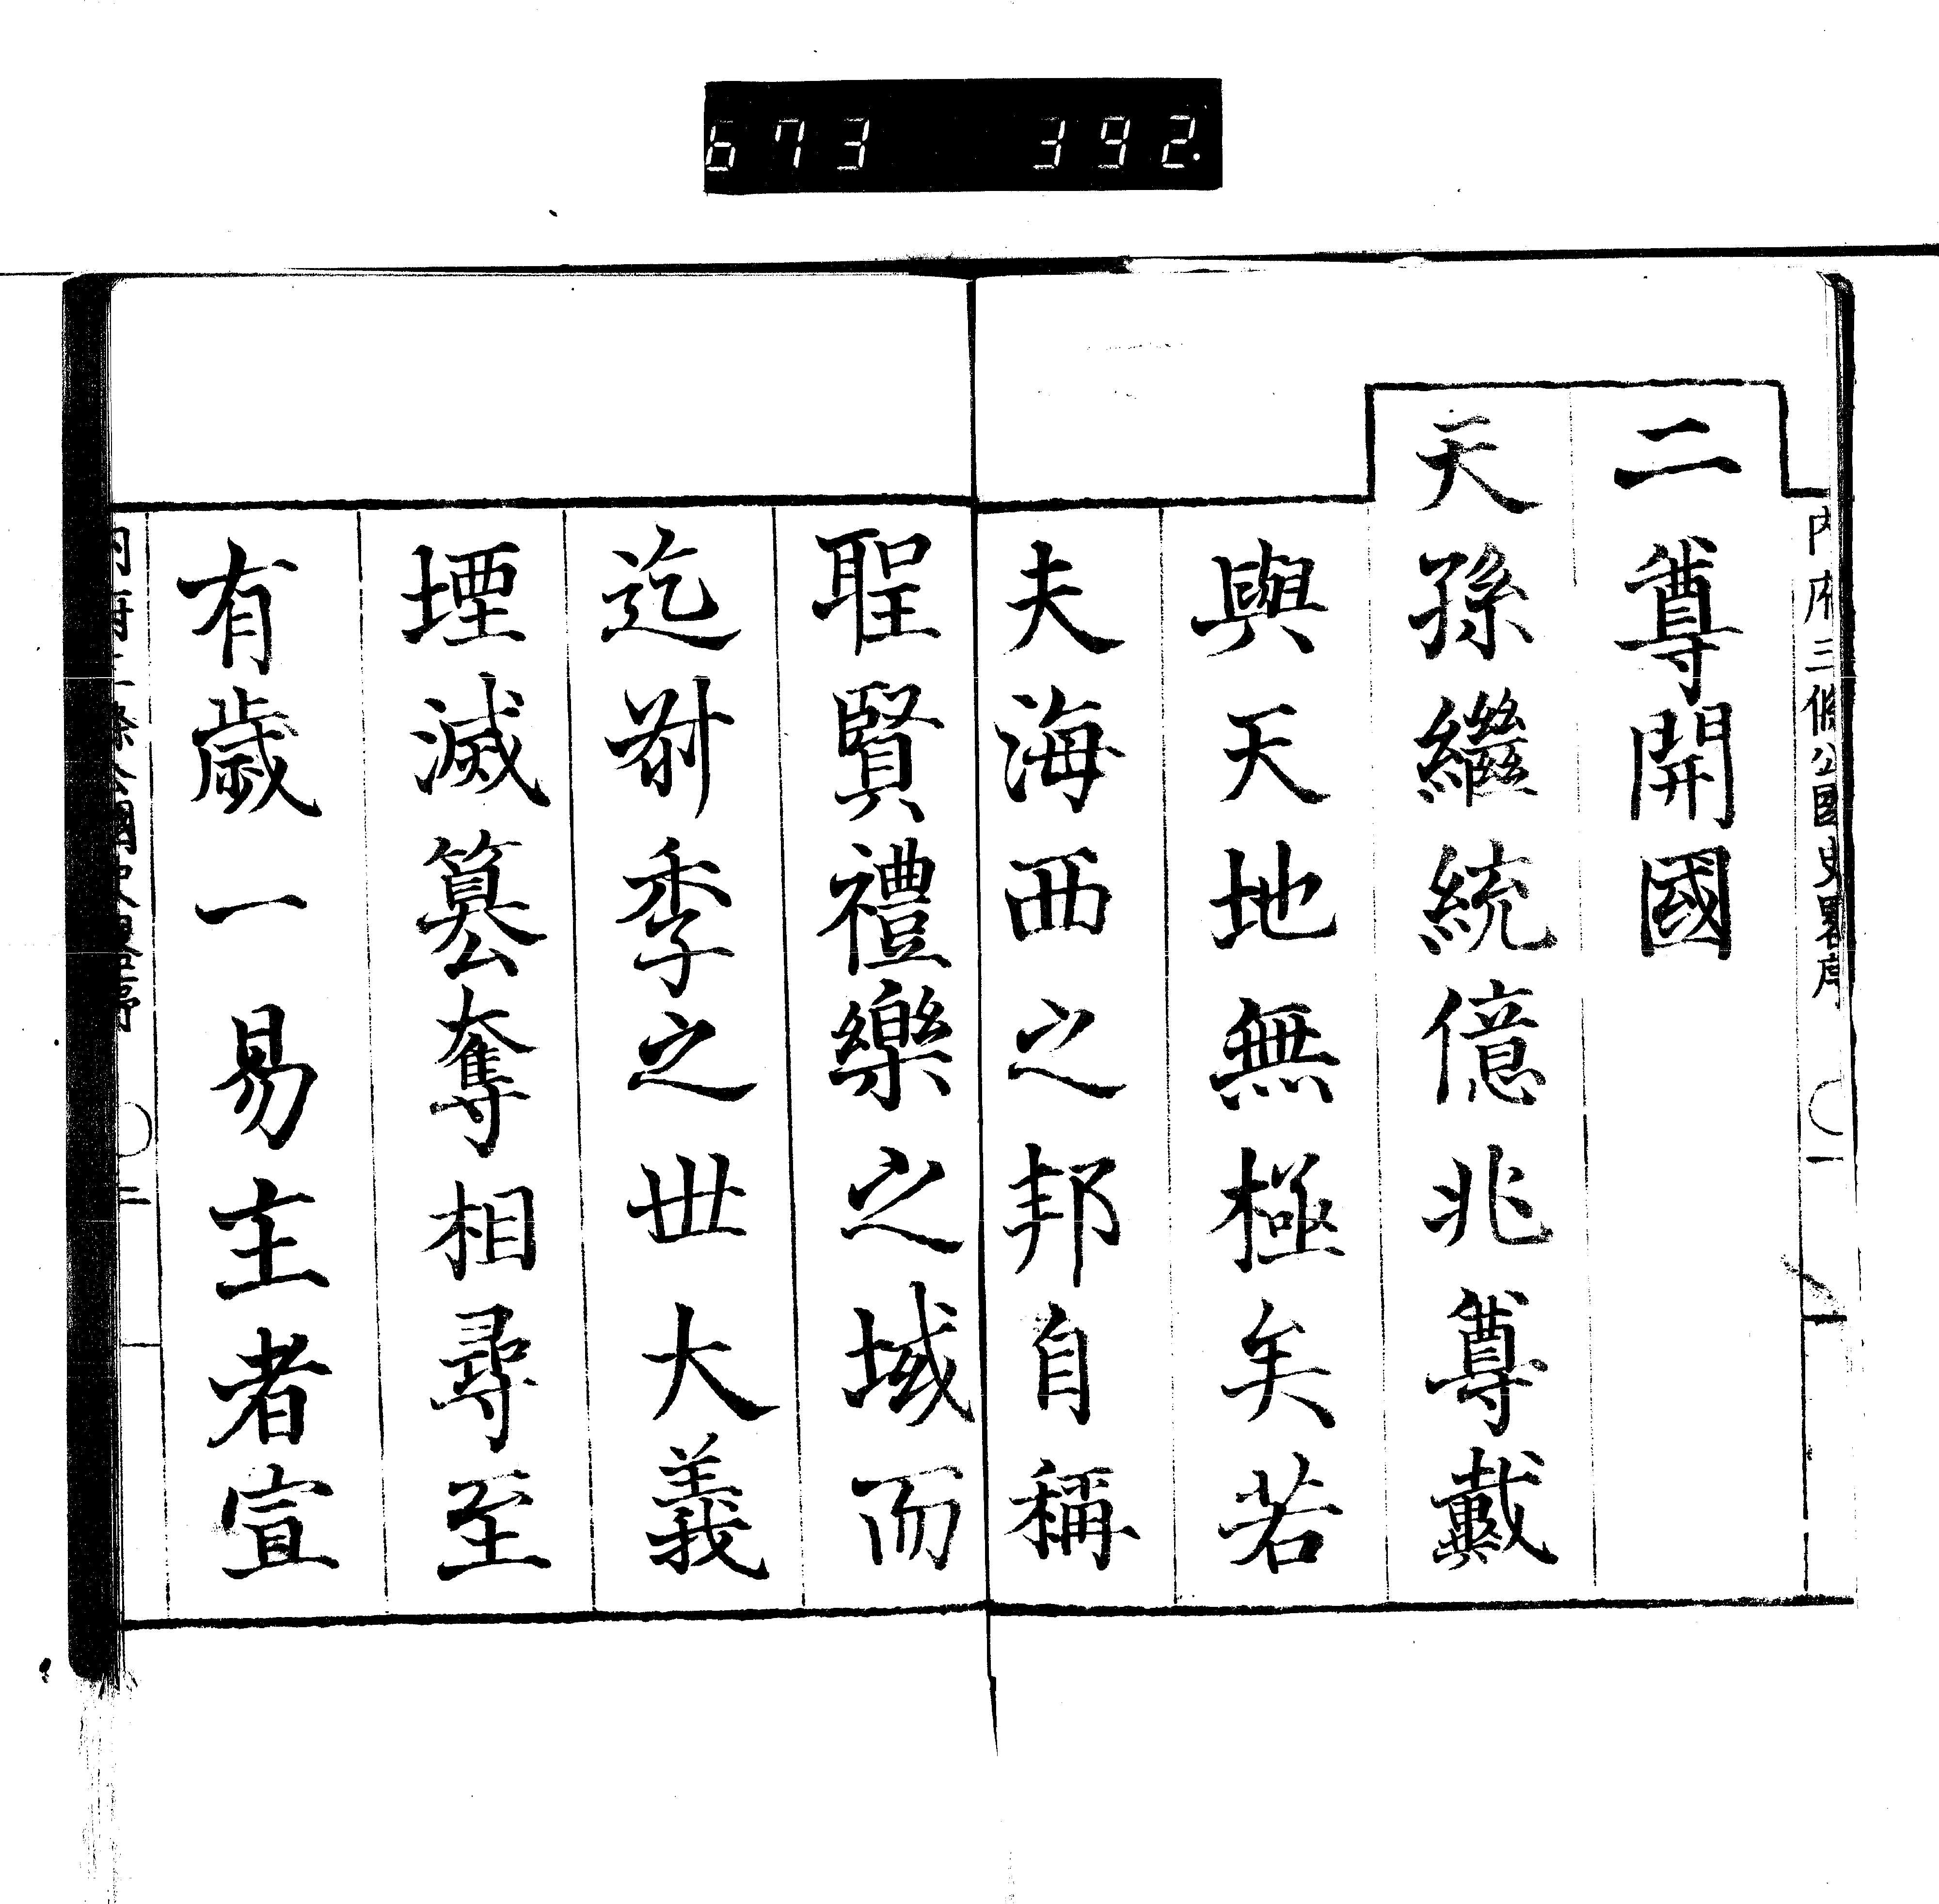 673 392.
内府三條公國史畧序 〇一
二尊開國
天孫繼統億兆尊戴
與天地無極矣若
夫海西之邦自稱
聖賢禮樂之域而
迄叔季之世大義
堙滅篡奪相尋至
有歳一易主者宣